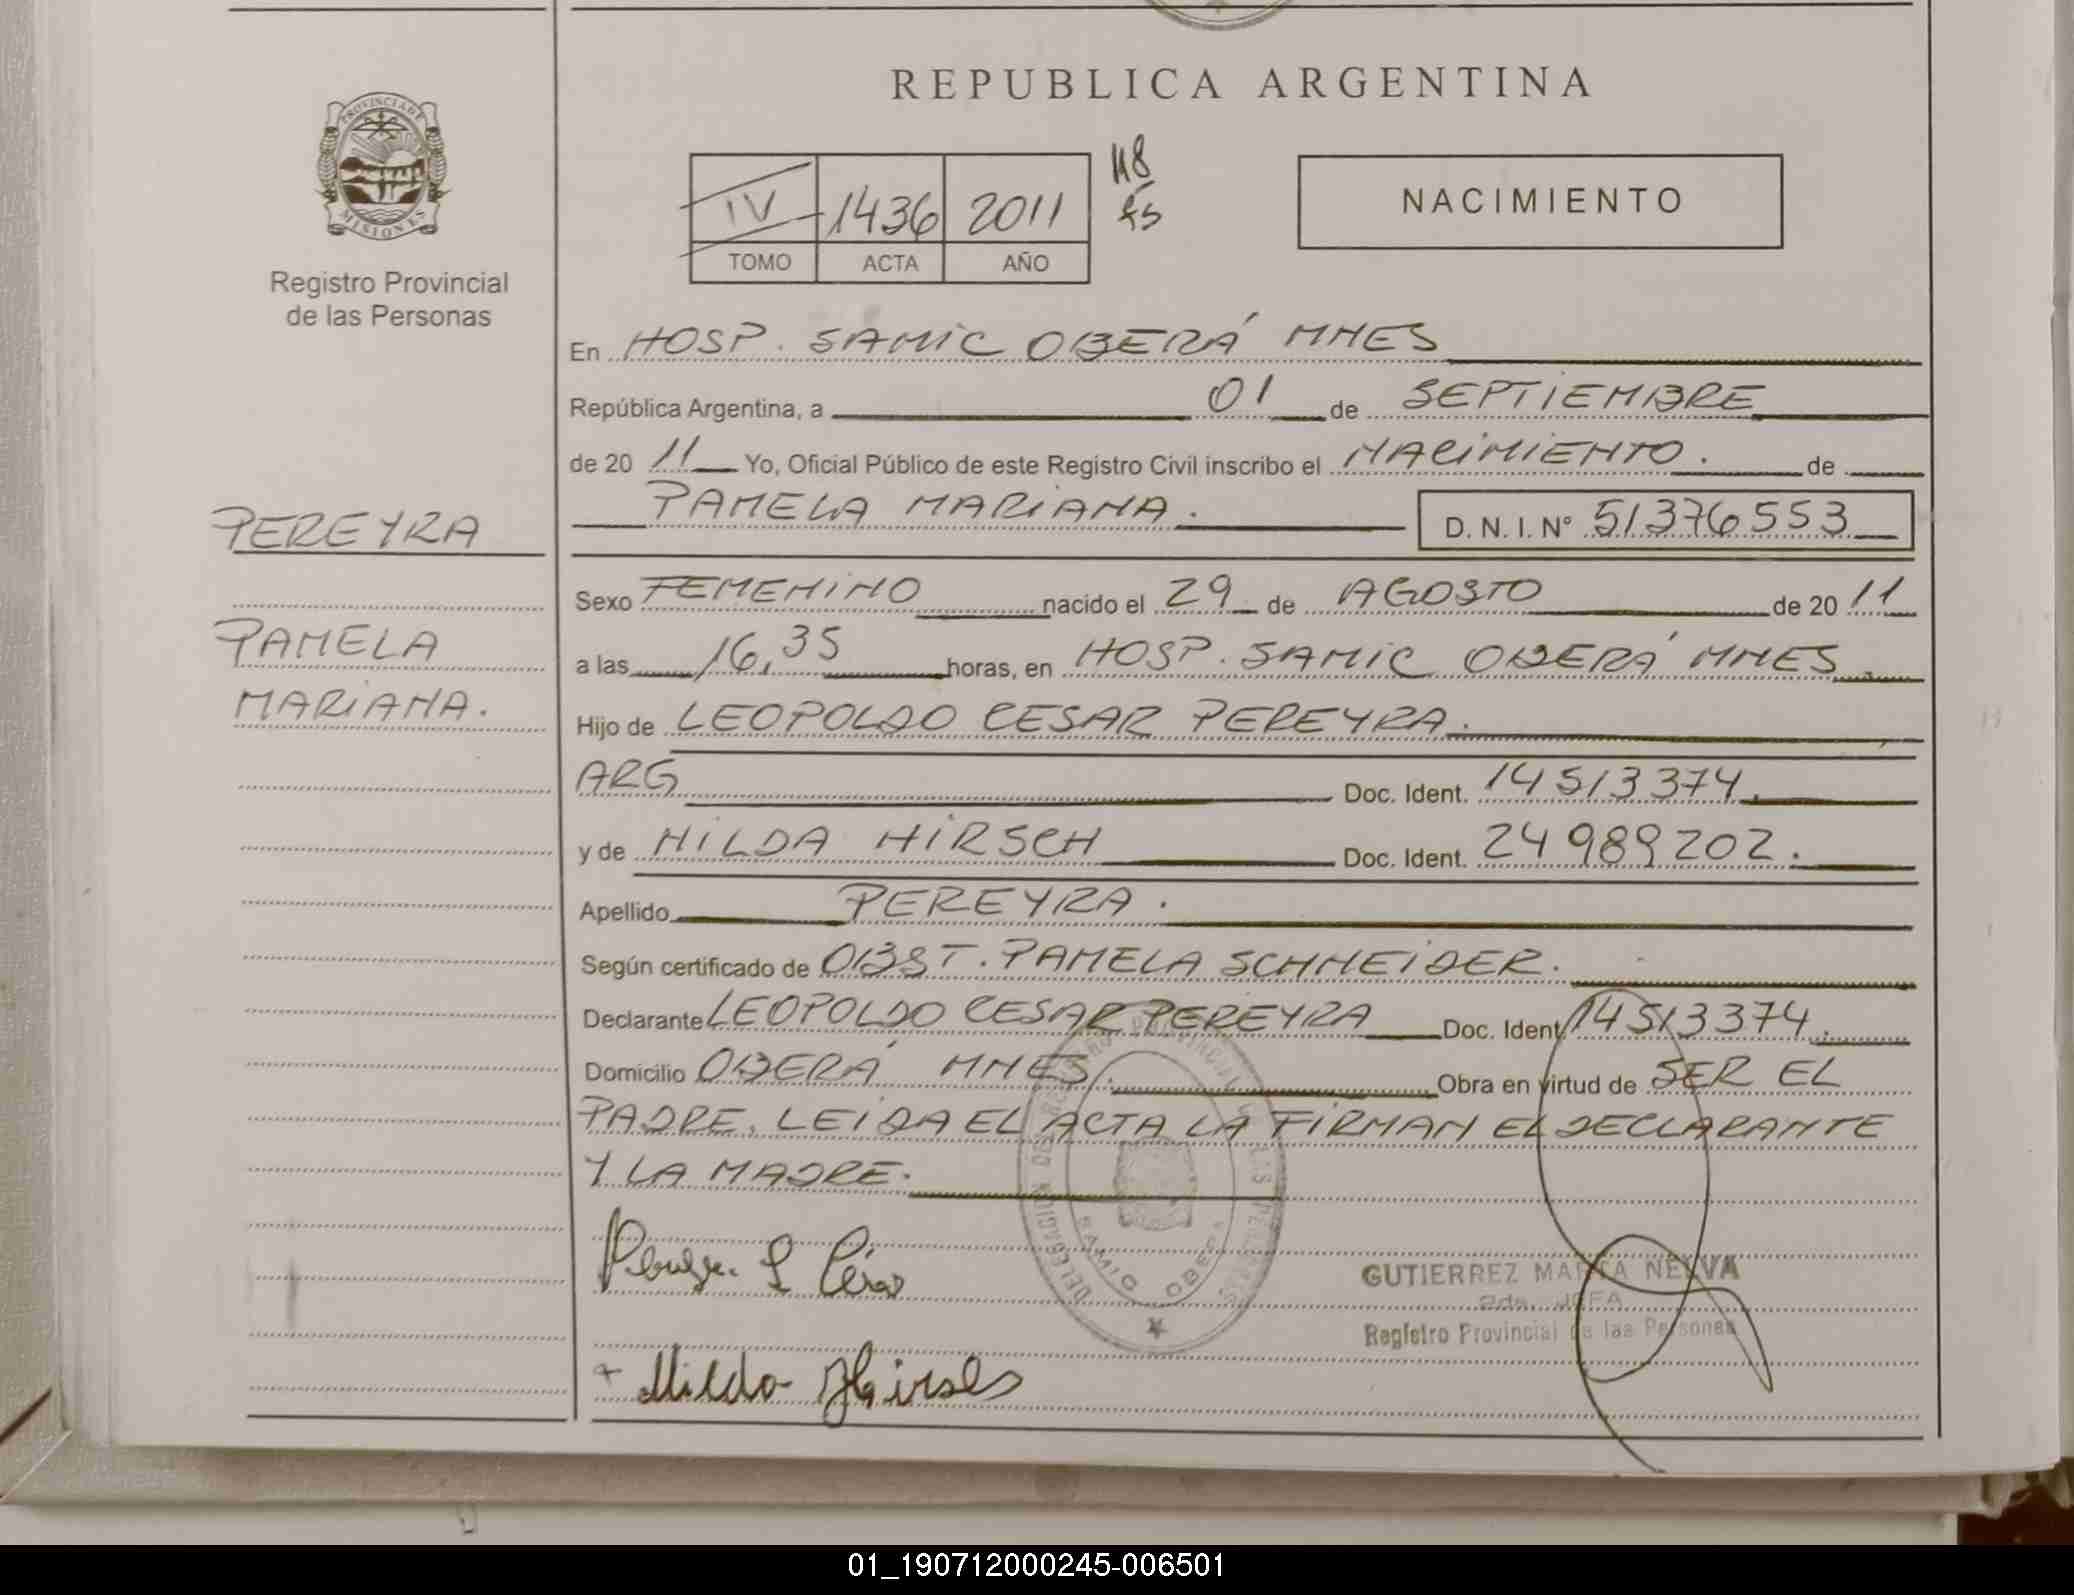 REPUBLICA ARGENTINA
PROVINCIA DE
MISIONES
Registro Provincial
de las Personas
IV 1436 2011
TOMO ACTA AÑO
118
fs
NACIMIENTO
En HOSP. SAMIC OBERÁ MNES
República Argentina, a 01 de SEPTIEMBRE
de 20 11 Yo, Oficial Público de este Registro Civil inscribo el NACIMIENTO. de
PAMELA MARIANA. D. N. I. N° 51376553
PEREYRA
PAMELA
MARIANA.
Sexo FEMENINO nacido el 29 de AGOSTO de 20 11
a las 16,35 horas, en HOSP. SAMIC OBERÁ MNES
Hijo de LEOPOLDO CESAR PEREYRA.
ARG Doc. Ident. 14513374.
y de HILDA HIRSCH Doc. Ident. 24989202.
Apellido PEREYRA.
Según certificado de OBST. PAMELA SCHNEIDER.
Declarante LEOPOLDO CESAR PEREYRA Doc. Ident. 14513374.
Domicilio OBERÁ MNES. Obra en virtud de SER EL
PADRE. LEIDA EL ACTA LA FIRMAN EL DECLARANTE
Y LA MADRE.
DELEGACION DEL REGISTRO PROVINCIAL DE LAS PERSONAS
SAMIC OBERA
GUTIERREZ MARTA NELVA
2da. JEFA
Registro Provincial de las Personas
+ Hilda Hirsch
01_190712000245-006501